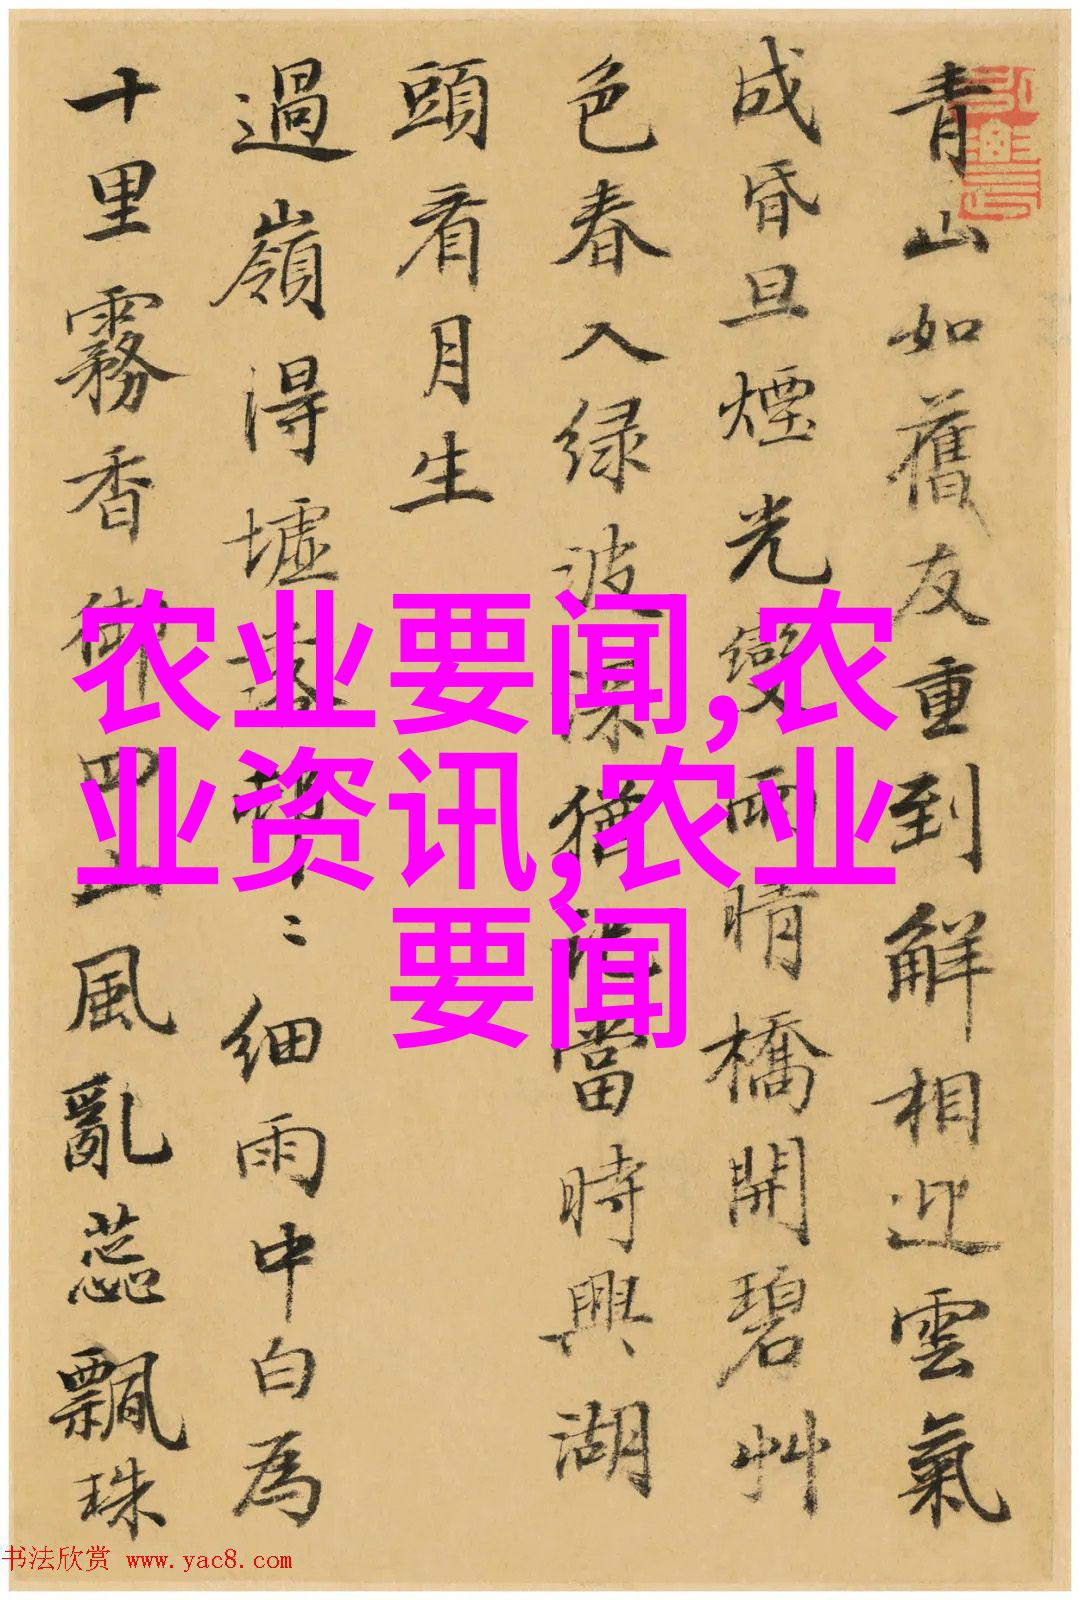 青山如舊友重到解相迎雲氣
成昏旦煙光變雨晴橋開碧艸
色春入绿波深猶當時興湖
頭看月生
過嶺得墟落細雨中白為
十里霧香四山風亂蕊飄珠
农业要闻,农
业资讯,农业
要闻
书法欣赏 www.yac8.com